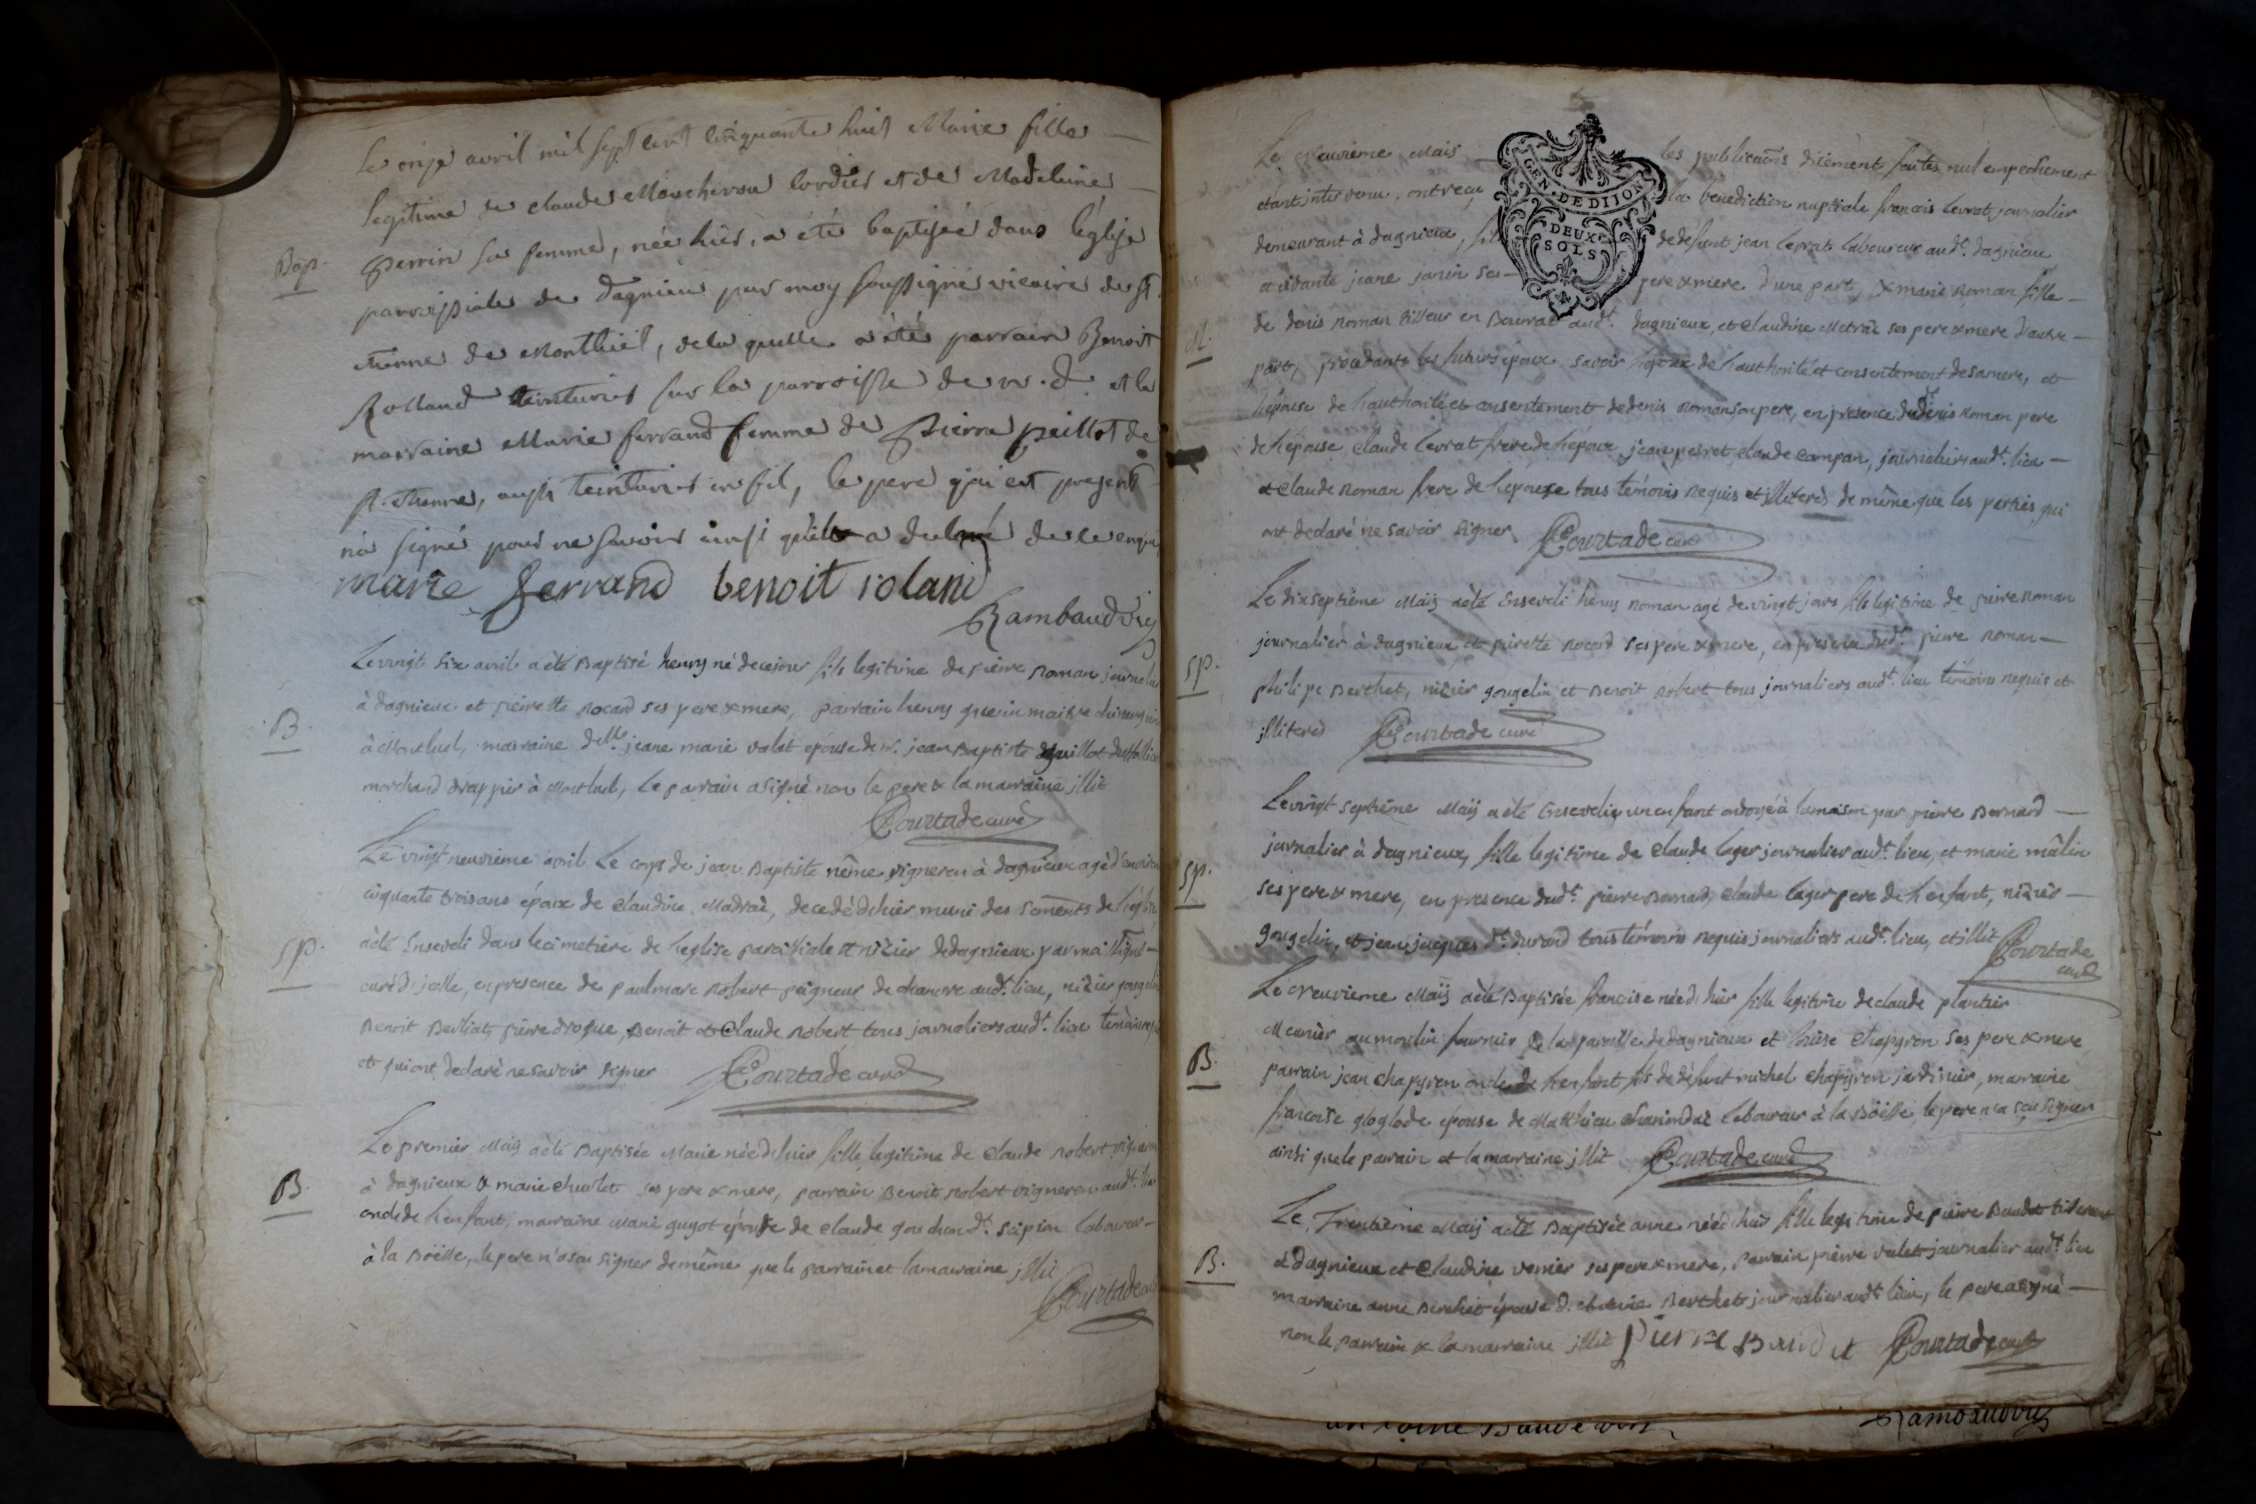 le onze avril mil sept cent cinquante huit Marie fille
legitime de claude Moucheron cordier et de Madelaine
Bap.
perrin sa femme, née hier, a été baptisée dans l'église
parroissiale de dagnieu par moy soussigné vicaire de st.
etienne de Montluel, de la quelle a été parrain Benoit
Rolland teinturier sur la parroisse de n. d. et la
marraine Marie ferrand femme de Pierre peillot de
st. etienne, aussi teinturier en fil, le pere qui est present
n'a signé pour ne savoir ainsi qu'il a declaré de ce enquis
marie ferrand benoit roland
Rambaud vic
Le vingt six avril a été Baptisé henry né de ce jour fils legitime de pierre Roman journalier
B.
à dagnieux et pierrette nocard ses pere & mere, parrain henry guerin maitre chirurgien
à Montluel, marraine delle jeane marie valet epouse de sr. jean Baptiste
marchand drappier à Montluel, le parrain a signé non le pere & la marraine illit
Courtade curé
Le vingt neuvième avril Le corps de jean Baptiste nême vigneron à dagnieux agé d'environ
cinquante trois ans époux de Claudine Madrac, decedé d'hier muni des sacments de l'église
sp.
a été Enseveli dans le cimetière de l'eglise paroissiale st nizier de dagnieux par moi
curé d'jcelle, en presence de paul marc Robert peigneur de chanvre audt. lieu, nizier gougelin
Benoit Berliat, pierre droque, Benoit et Claude Robert tous journaliers audt. lieu temoins
et qui ont declaré ne savoir signer Courtade curé
Le premier Maij a été Baptisée Marie née d'hier fille legitime de Claude Robert vigneron
B.
à dagnieux & marie chuilet ses pere & mere, parrain Benoit Robert vigneron audt. lieu
oncle de l'enfant, marraine Marie guyot épouse de Claude dt. scipion laboureur
à la Böisse, le pere n'a scu signer de même que le parrain et la marraine illit
Courtade curé
GEN. DE DIJON
DEUX SOLS
Le neuvième Maij les publications düement faites nul empechement
étant intervenu, ont reçu la bénédiction nuptiale francois levrat journalier
demeurant à dagnieux, fils de defunt jean levrat laboureur audt. dagnieux
et vivante jeane janin ses pere & mere d'une part, & marie Roman fille
M.
de denis Roman tilleur en audt. dagnieux, et Claudine Metrac ses pere & mere d'autre
part, procedants les futurs époux savoir l'époux de l'authorité et consentement de sa mere, et
l'épouse de l'authorité et consentement de denis Roman son pere, en presence dudt. denis Roman pere
de l'épouse Claude levrat frere de l'époux, jean perret, claude campan, journaliers audt. lieu
et Claude Roman frere de l'epouse tous temoins requis et illiterés de même que les parties qui
ont declaré ne savoir signer Courtade curé
Le dixseptième Maij a été Enseveli henry Roman agé de vingt jours fils legitime de pierre Roman
journalier à dagnieux et pierette nocard ses pere & mere, en presence dudt. pierre Roman
sp.
philipe Berthet, nizier gougelin et Benoit Robert tous journaliers audt. lieu temoins requis et
illiteres Courtade curé
Le vingt septième Maij a été Ensevelie un enfant ondoyé à la maison par pierre Bernard
journalier à dagnieux, fille legitime de Claude lager journalier audt. lieu, et marie mâlin
sp.
ses pere & mere, en presence dudt. pierre Bernard, Claude lager pere de l'enfant, nizier
gougelin, et jean jacques dt. durand tous temoins requis journaliers audt. lieu, et illit Courtade
curé
Le neuvieme Maij a été Baptisée francoise née d'hier fille legitime de claude plantier
Meunier au moulin fournier de la paroisse de dagnieux et loüise Chapyron ses pere & mere
B.
parrain jean chapyron oncle de l'enfant, fils de défunt michel chapyron jardinier, marraine
francoise epouse de Matthieu laboureur à la Böisse, le pere n'a sçu signer
ainsi que le parrain et la marraine illit Courtade curé
Le Trentième Maij a été Baptisée anne née d'hier fille legitime de pierre Baudet tisserant
B.
à Dagnieux et Claudine vernier ses pere & mere, parrain pierre valet journalier audt. lieu
marraine anne Berchet épouse d'etienne Berthet journalier audt. lieu, le pere a signé
non le parrain & la marraine illit pierre Baud et Courtade curé
antoine Baudevin Rambaud vic